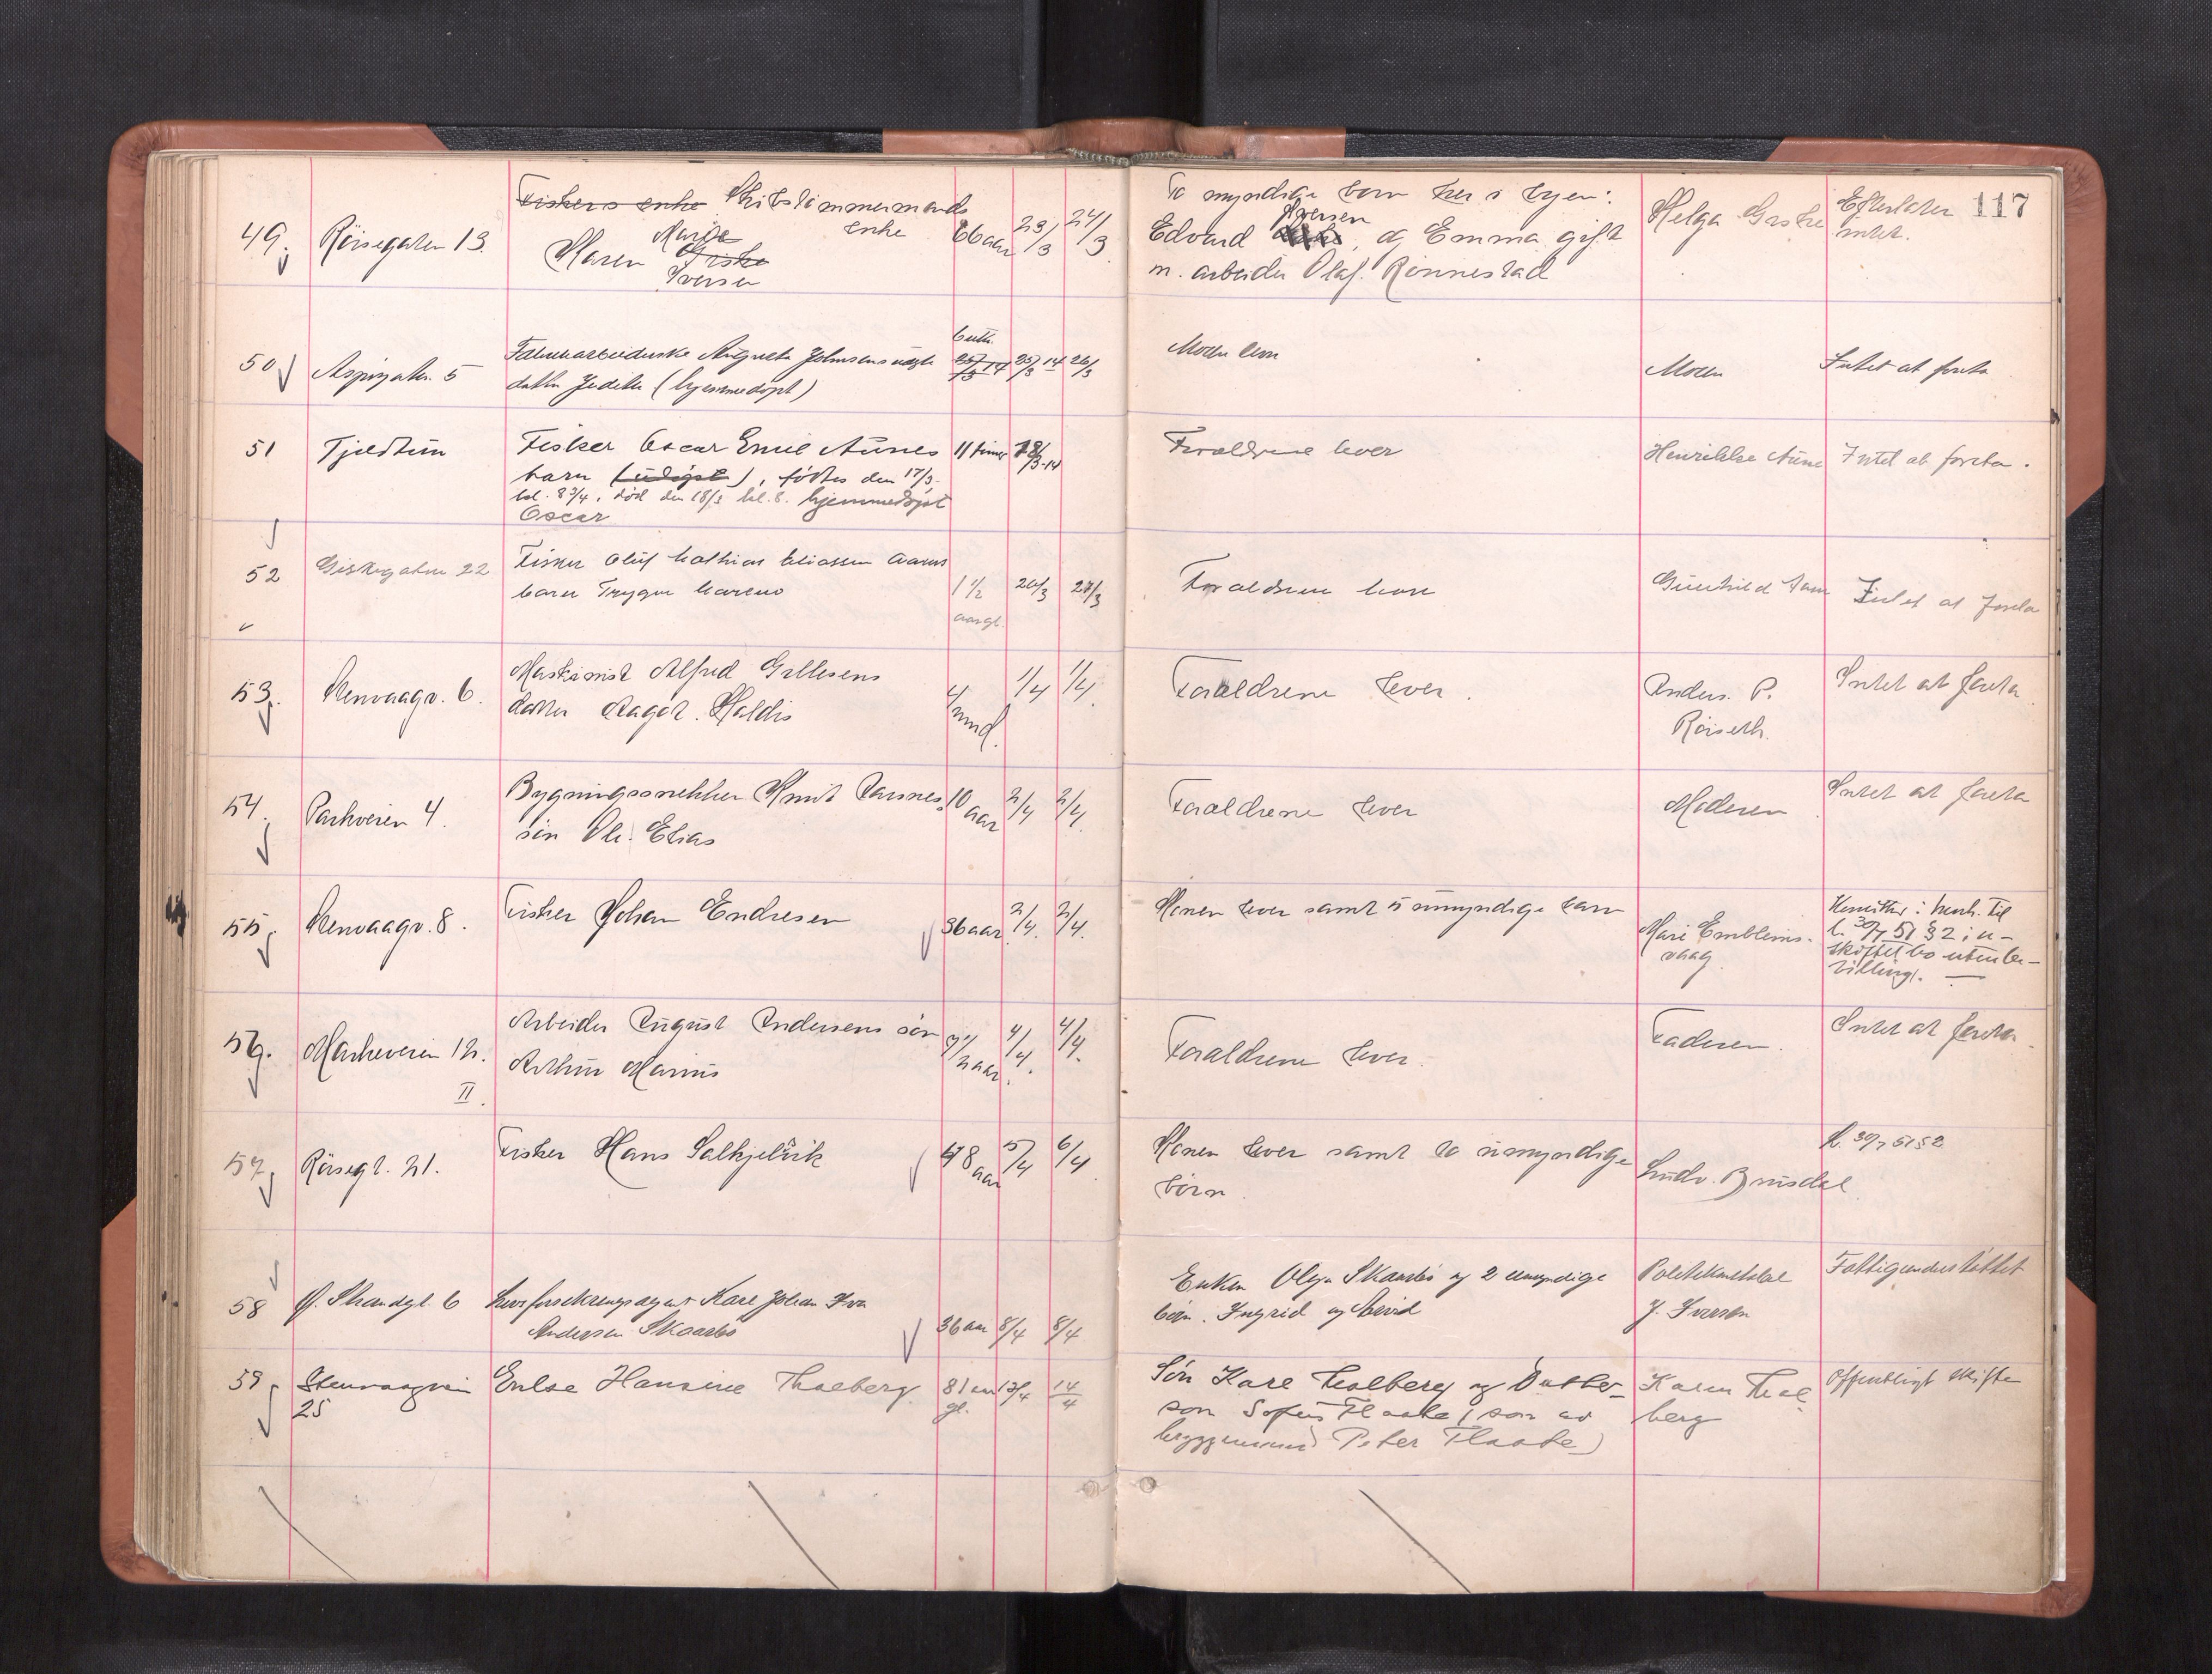 117
49. Röisegaten 13. Fiskers enke Skibstömmermands enke
Maren Marie Giske Iversen
66 aar 23/3 24/3
To myndige born her i byen:
Edvard Iversen, og Emma gift
m. arbeider Olaf Rönnestad
Helga Giske
Efterlater intet.
50 Aspegaten 5 Fabrikarbeiderske Augusta Johnsens uægte
datter Judith (hjemmedöpt)
25/3 14 25/3 14 26/3
Moren
Moren
Intet at foreta
51 Tjeldtun Fisker Oscar Emil Aunes
barn (udöpt), födtes den 17/3
kl. 8 3/4, död den 18/3 kl. 8. hjemmedöpt
Oscar
11 timer 18/3-14
Forældrene lever
Henrikke Aune
Intet at foreta.
52 Giskegaten 22 Fisker Oluf Mathias Eliassen
barn Trygve
1 1/2 aar gl. 26/3 27/3
Forældrene lever
Gunhild
Intet at foreta
53. Stenvaagv. 6. Maskinist Alfred Gillesens
datter Ragnh. Haldis
4 mnd. 1/4 1/4.
Forældrene lever.
Anders. P.
Röiseth.
Intet at foreta
54. Parkveien 4. Bygningssnekker Knut
sön Ole Elias
10 aar 2/4 2/4.
Forældrene lever
Moderen
Intet at foreta
55. Stenvaagv. 8. Fisker Johan Endresen
36 aar 2/4. 2/4.
Konen lever samt 5 umyndige barn
Mari Emblems-
vaag
Hensitter i henh. til
l. 30/7 51 § 2 i u-
skiftet bo uten be-
villing.
56. Markeveien 12. II. Arbeider August Andersens sön
Arthur Marius
1/2 aar. 4/4. 4/4.
Forældrene lever.
Faderen.
Intet at foreta.
57. Röiseg t. 21. Fisker Hans Salkjelsvik
48 aar 5/4 6/4
Konen lever samt to umyndige
börn.
Ludv. Brusdal
l. 30/7 51 § 2
58 N. Strandgt. 6 Livsforsikringsagent Kare Johan
Andersen Skaarbö
36 aar 8/4 8/4
Enken Olga Skaarbö og 2 umyndige
börn. Ingrid og Arvid
Politikonstabel
J. Iversen
Fattigunderstöttet
59 Stenvaagvein 25 Enke Hansine Thaeberg
81 aar gl. 13/4 14/4
Sön Kare Tholberg og Datter-
son Sofus Flaate (son av
bryggemand Peter Flaate)
Karen Thol
berg
Offentligt skifte